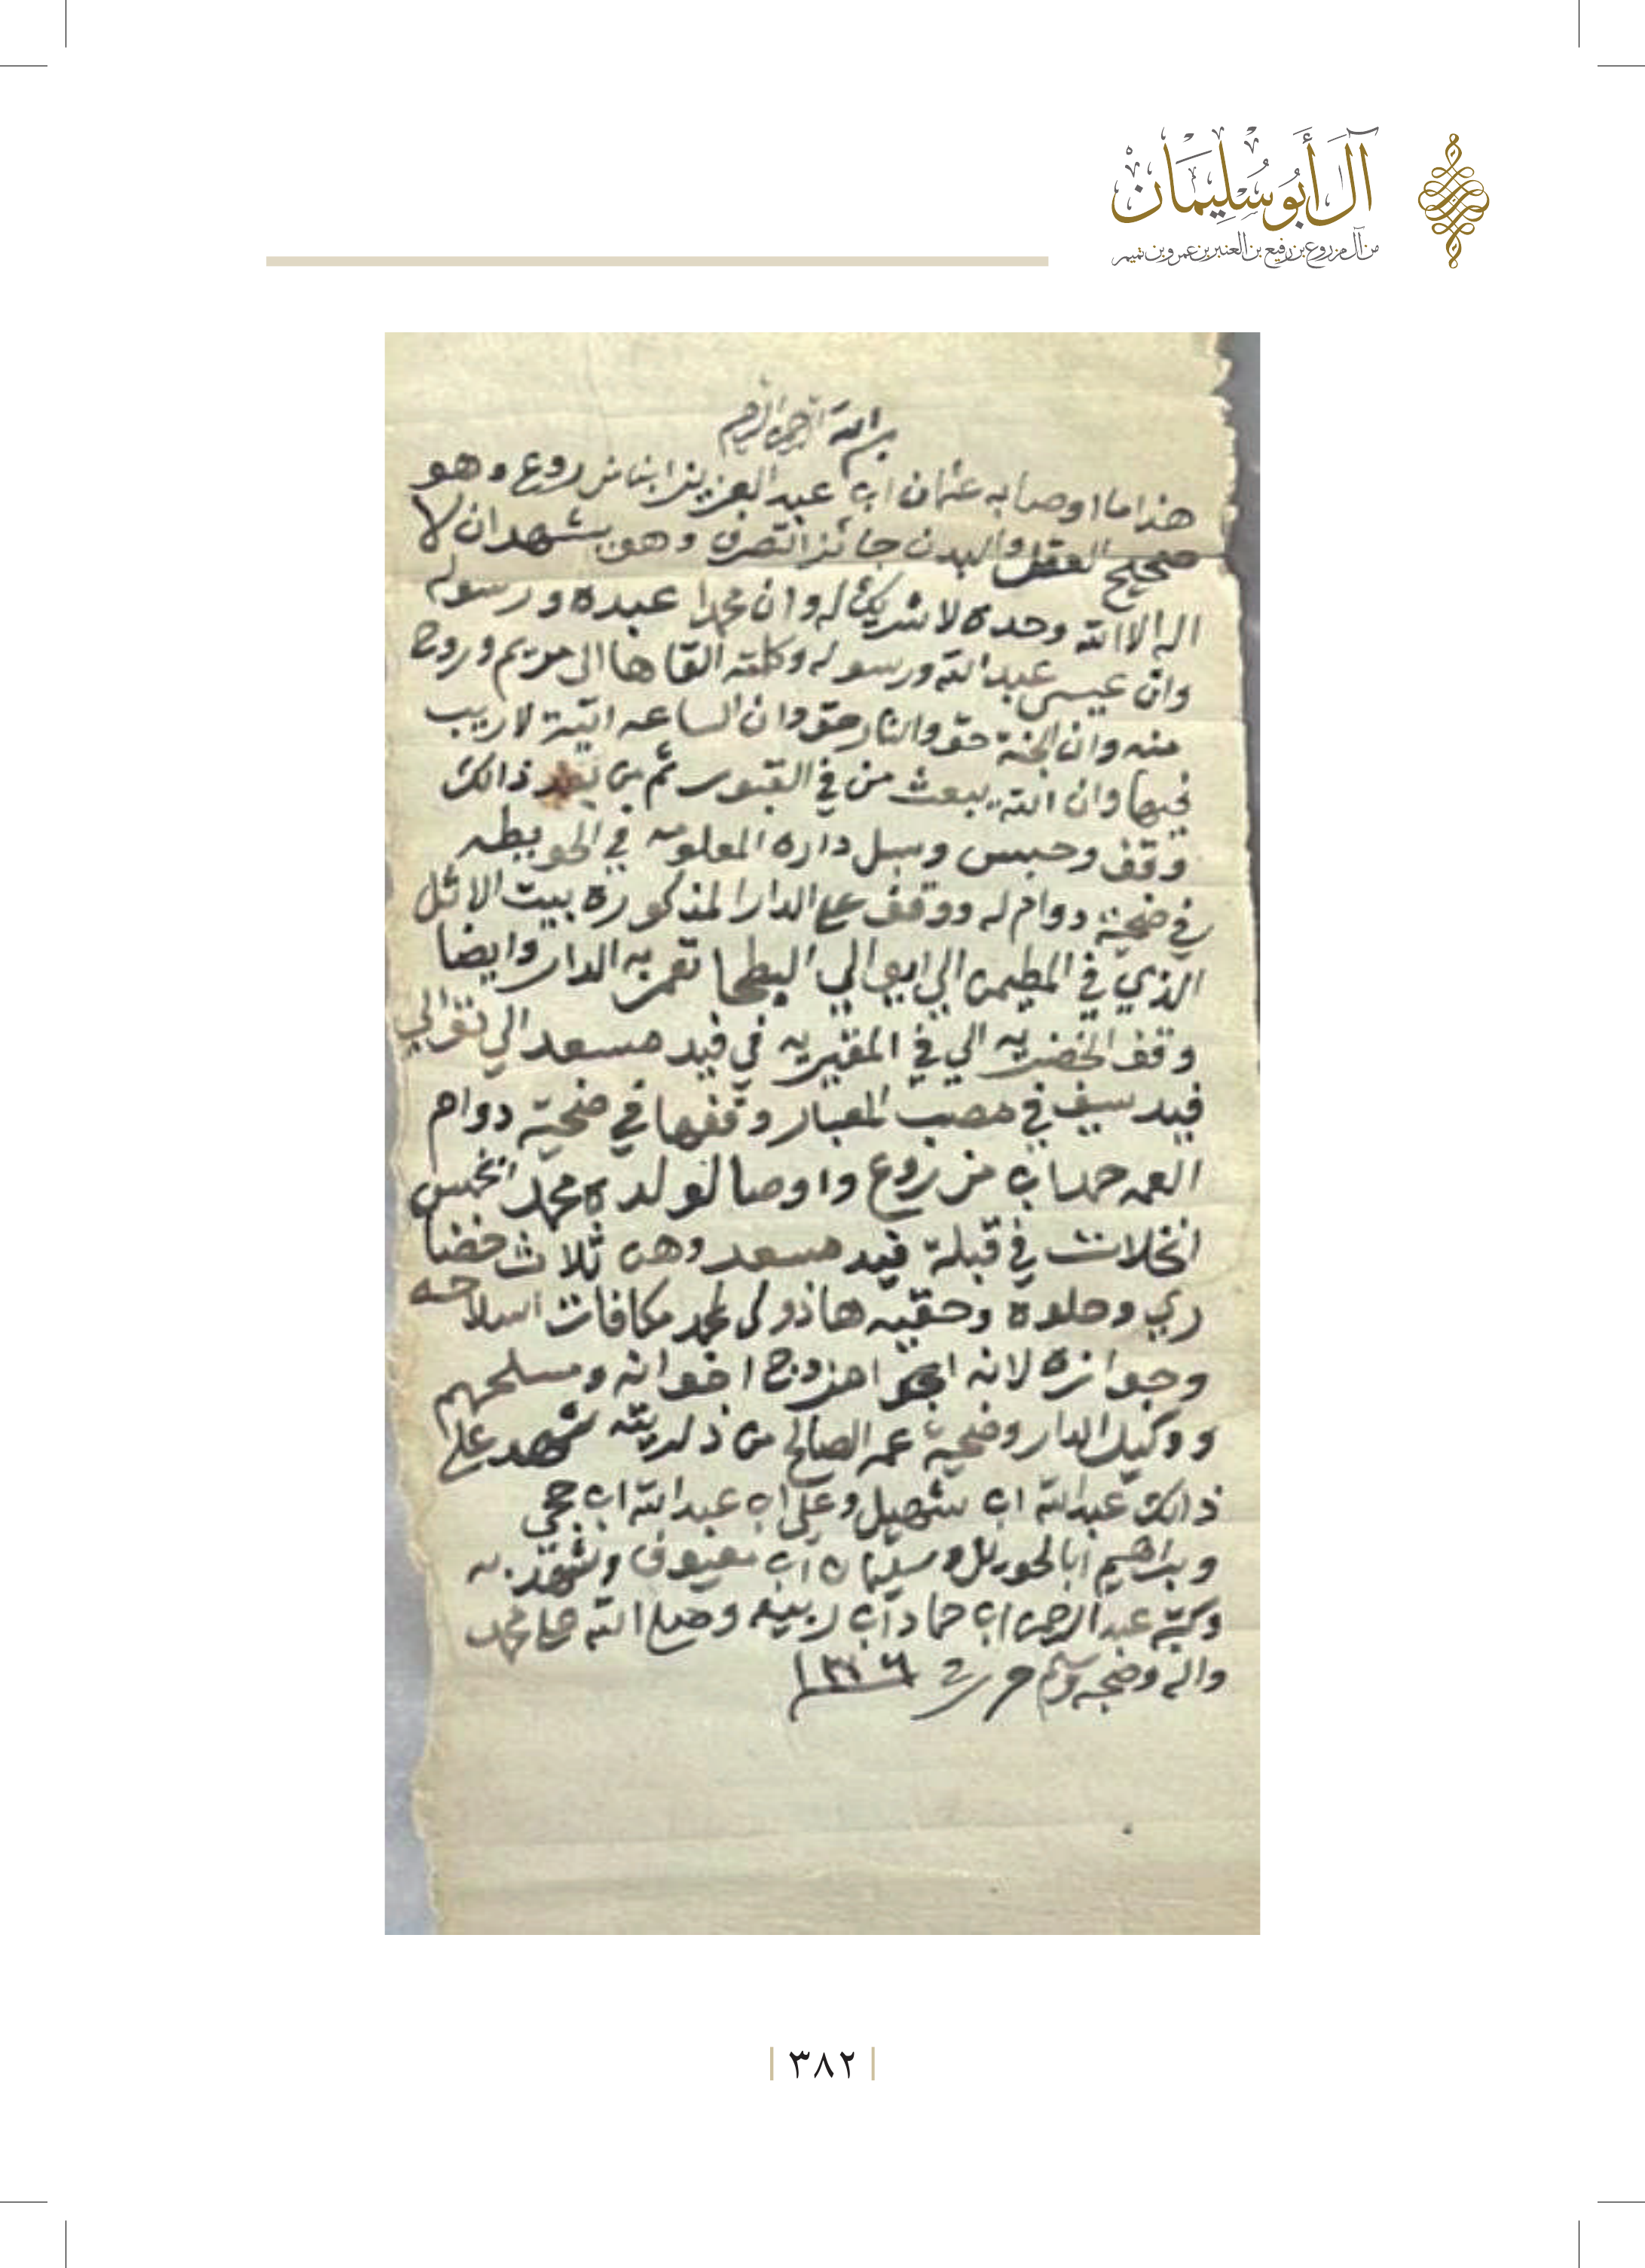 آل أبو سليمان
من آل مزروع بن رفيع بن العنبر بن عمرو بن تميم
بسم الله الرحمن الرحيم
هذا ما اوصا به عثمان ابن عبد العزيز ابن مزروع وهو
صحيح العقل والبدن جائز التصرف وهو يشهد ان لا
اله الا الله وحده لا شريك له وان محمدا عبده ورسوله
وان عيسى عبد الله ورسوله وكلمته القاها الى مريم وروح
منه وان الجنة حق والنار حق وان الساعه اتية لا ريب
فيها وان الله يبعث من في القبور ثم من بعد ذالك
وقف وحبس وسبل داره المعلومه في الحويطه
في ضحية دوام له ووقف على الدار المذكورة بيت الاثل
الذي في المطيمن الي ايوالي البطحا تعمر به الدار وايضا
وقف الخضريه الي في المقيبريه في قيد مسعد الي توالي
قيد سيف في مصب المعبار وقفها في ضحية دوام
لعمه حمد ابن مزروع واوصا لولده محمد الخمس
انخلات في قبلة قيد مسعد وهن ثلاث خضا
ري وحلوه وحقيه هاذولي لمحمد مكافات اسلاحه
وجوازه لانه مزوج اخوانه ومسلحهم
ووكيل الدار وضحية عمه الصالح من ذريته شهد على
ذالك عبد الله ابن سهيل وعلي ابن عبد الله ابن حجي
وبراهيم ابا الحورئل وسليمان ابن معيوف وشهد به
وكتبه عبد الرحمن ابن حماد ابن ربيعه وصلى الله على محمد
واله وصحبه وسلم
٣٨٢